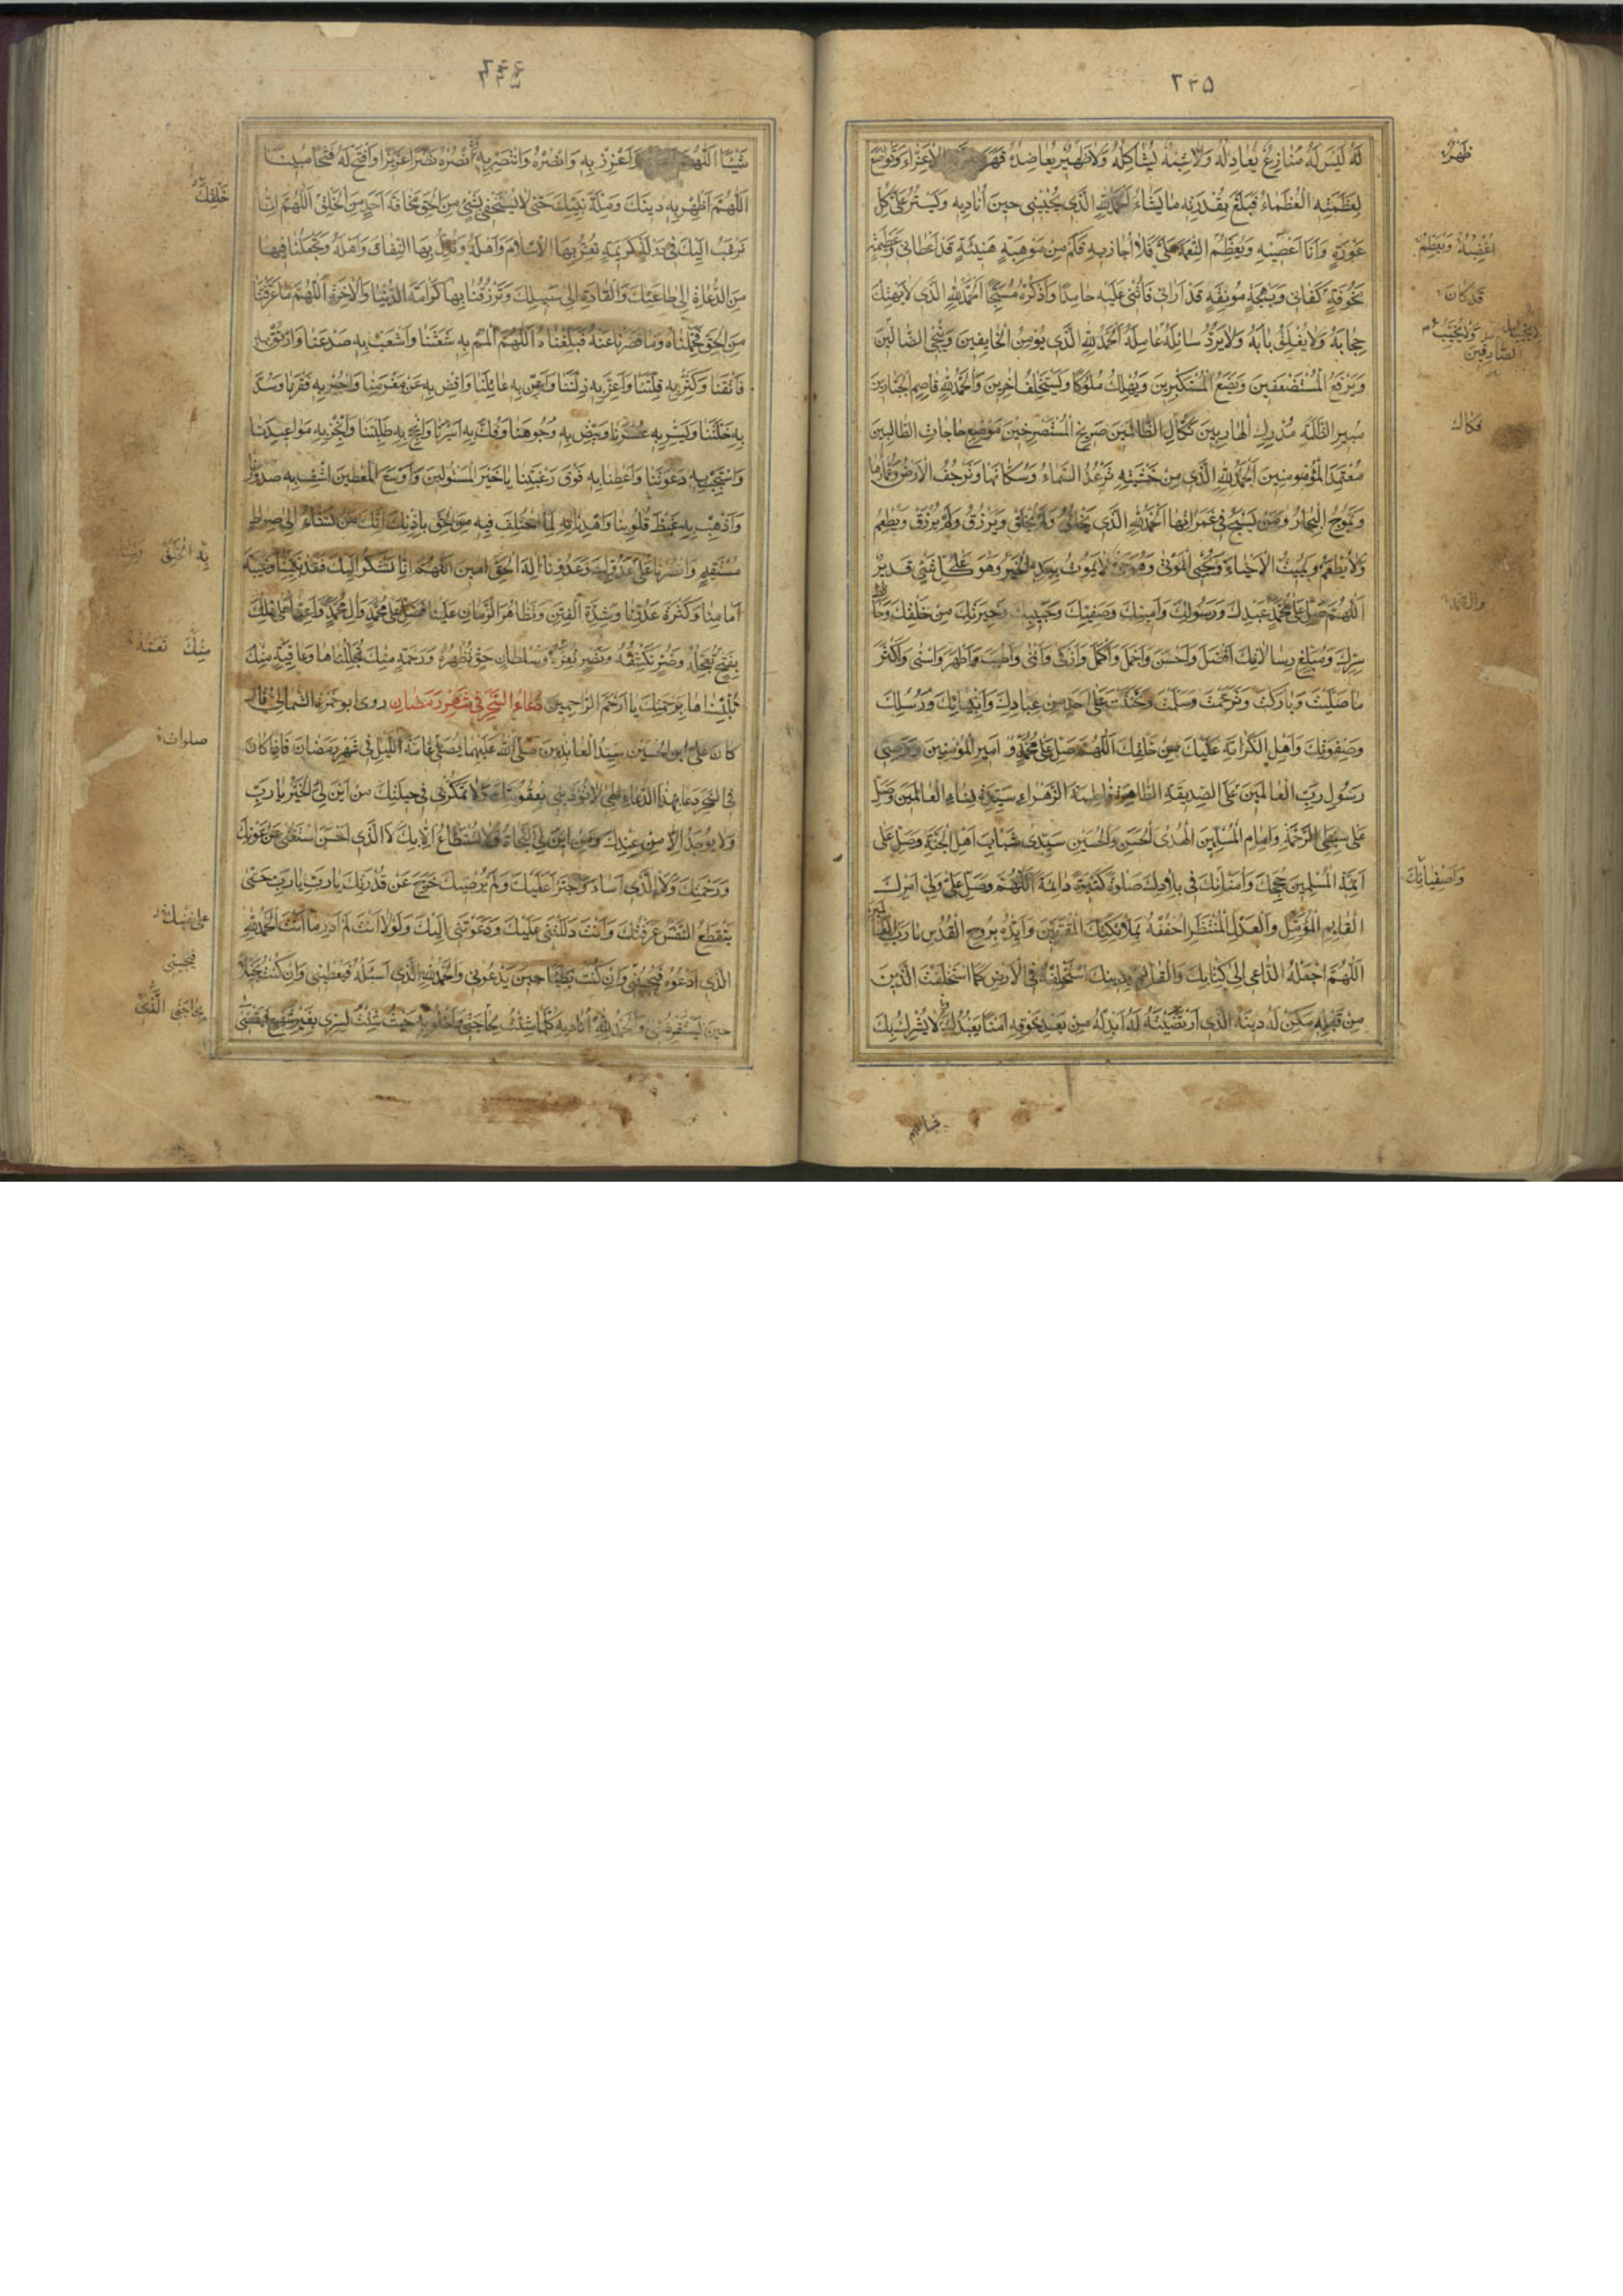 ٢٣٥
لَهُ لَيْسَ لَهُ مُنَازِعٌ يُعَادِلُهُ وَلَا شِبْهٌ يُشَاكِلُهُ وَلَا ظَهِيرٌ يُعَاضِدُهُ قَهَرَ بِعِزَّتِهِ الْأَعِزَّاءَ وَتَوَاضَعَ
لِعَظَمَتِهِ الْعُظَمَاءُ فَبَلَغَ بِقُدْرَتِهِ مَا يَشَاءُ اَلْحَمْدُ لِلّٰهِ الَّذِي يُجِيبُنِي حِينَ أُنَادِيهِ وَيَسْتُرُ عَلَيَّ كُلَّ
عَوْرَةٍ وَأَنَا أَعْصِيهِ وَيُعَظِّمُ النِّعْمَةَ عَلَيَّ فَلَا أُجَازِيهِ فَكَمْ مِنْ مَوْهِبَةٍ هَنِيئَةٍ قَدْ أَعْطَانِي وَعَظِيمَةٍ
مَخُوفَةٍ كَفَانِي وَبَهْجَةٍ مُونِقَةٍ قَدْ أَرَانِي فَأُثْنِي عَلَيْهِ حَامِدًا وَأَذْكُرُهُ مُسَبِّحًا اَلْحَمْدُ لِلّٰهِ الَّذِي لَا يُهْتَكُ
حِجَابُهُ وَلَا يُغْلَقُ بَابُهُ وَلَا يُرَدُّ سَائِلُهُ عَامِلُهُ اَلْحَمْدُ لِلّٰهِ الَّذِي يُؤْمِنُ الْخَائِفِينَ وَيُنَجِّي الصَّالِّينَ
وَيَرْفَعُ الْمُسْتَضْعَفِينَ وَيَضَعُ الْمُسْتَكْبِرِينَ وَيُهْلِكُ مُلُوكًا وَيَسْتَخْلِفُ آخَرِينَ وَالْحَمْدُ لِلّٰهِ قَاصِمِ الْجَبَّارِينَ
مُبِيرِ الظَّلَمَةِ مُدْرِكِ الْهَارِبِينَ نَكَالِ الظَّالِمِينَ صَرِيخِ الْمُسْتَصْرِخِينَ مَوْضِعِ حَاجَاتِ الطَّالِبِينَ
مُعْتَمَدِ الْمُؤْمِنِينَ اَلْحَمْدُ لِلّٰهِ الَّذِي مِنْ خَشْيَتِهِ تَرْعُدُ السَّمَاءُ وَسُكَّانُهَا وَتَرْجُفُ الْأَرْضُ وَعُمَّارُهَا
وَتَمُوجُ الْبِحَارُ وَمَنْ يَسْبَحُ فِي غَمَرَاتِهَا اَلْحَمْدُ لِلّٰهِ الَّذِي يَخْلُقُ وَلَمْ يُخْلَقْ وَيَرْزُقُ وَلَمْ يُرْزَقْ وَيُطْعِمُ
وَلَا يُطْعَمُ وَيُمِيتُ الْأَحْيَاءَ وَيُحْيِي الْمَوْتَى وَهُوَ حَيٌّ لَا يَمُوتُ بِيَدِهِ الْخَيْرُ وَهُوَ عَلَى كُلِّ شَيْءٍ قَدِيرٌ
اَللّٰهُمَّ صَلِّ عَلَى مُحَمَّدٍ عَبْدِكَ وَرَسُولِكَ وَأَمِينِكَ وَصَفِيِّكَ وَحَبِيبِكَ وَخِيَرَتِكَ مِنْ خَلْقِكَ وَحَافِظِ
سِرِّكَ وَمُبَلِّغِ رِسَالَاتِكَ أَفْضَلَ وَأَحْسَنَ وَأَجْمَلَ وَأَكْمَلَ وَأَزْكَى وَأَنْمَى وَأَطْيَبَ وَأَطْهَرَ وَأَسْنَى وَأَكْثَرَ
مَا صَلَّيْتَ وَبَارَكْتَ وَتَرَحَّمْتَ وَسَلَّمْتَ وَتَحَنَّنْتَ عَلَى أَحَدٍ مِنْ عِبَادِكَ وَأَنْبِيَائِكَ وَرُسُلِكَ
وَصَفْوَتِكَ وَأَهْلِ الْكَرَامَةِ عَلَيْكَ مِنْ خَلْقِكَ اَللّٰهُمَّ صَلِّ عَلَى مُحَمَّدٍ وَأَمِيرِ الْمُؤْمِنِينَ وَوَصِيِّ
رَسُولِ رَبِّ الْعَالَمِينَ عَلَى الصِّدِّيقَةِ الطَّاهِرَةِ فَاطِمَةَ الزَّهْرَاءِ سَيِّدَةِ نِسَاءِ الْعَالَمِينَ وَصَلِّ
عَلَى سِبْطَيِ الرَّحْمَةِ وَإِمَامَيِ الْمُسْلِمِينَ الْهُدَى الْحَسَنِ وَالْحُسَيْنِ سَيِّدَيْ شَبَابِ أَهْلِ الْجَنَّةِ وَصَلِّ عَلَى
أَئِمَّةِ الْمُسْلِمِينَ حُجَجِكَ وَأُمَنَائِكَ فِي بِلَادِكَ صَلٰوةً كَثِيرَةً دَائِمَةً اَللّٰهُمَّ وَصَلِّ عَلَى وَلِيِّ أَمْرِكَ
الْقَائِمِ الْمُؤَمَّلِ وَالْعَدْلِ الْمُنْتَظَرِ احْفُفْهُ بِمَلَائِكَتِكَ الْمُقَرَّبِينَ وَأَيِّدْهُ بِرُوحِ الْقُدُسِ يَا رَبَّ الْعَالَمِينَ
اَللّٰهُمَّ اجْعَلْهُ الدَّاعِيَ إِلَى كِتَابِكَ وَالْقَائِمَ بِدِينِكَ اسْتَخْلِفْهُ فِي الْأَرْضِ كَمَا اسْتَخْلَفْتَ الَّذِينَ
مِنْ قَبْلِهِ مَكِّنْ لَهُ دِينَهُ الَّذِي ارْتَضَيْتَهُ لَهُ أَبْدِلْهُ مِنْ بَعْدِ خَوْفِهِ أَمْنًا يَعْبُدُكَ لَا يُشْرِكُ بِكَ
قَدْ كَانَ
الصَّادِقِينَ
وَأَصْفِيَائِكَ
شَيْئًا اَللّٰهُمَّ أَعِزَّهُ وَأَعْزِزْ بِهِ وَانْصُرْهُ وَانْتَصِرْ بِهِ انْصُرْهُ نَصْرًا عَزِيزًا وَافْتَحْ لَهُ فَتْحًا مُبِينًا
اَللّٰهُمَّ أَظْهِرْ بِهِ دِينَكَ وَمِلَّةَ نَبِيِّكَ حَتَّى لَا يَسْتَخْفِيَ بِشَيْءٍ مِنَ الْحَقِّ مَخَافَةَ أَحَدٍ مِنَ الْخَلْقِ اَللّٰهُمَّ إِنَّا
نَرْغَبُ إِلَيْكَ فِي دَوْلَةٍ كَرِيمَةٍ تُعِزُّ بِهَا الْإِسْلَامَ وَأَهْلَهُ وَتُذِلُّ بِهَا النِّفَاقَ وَأَهْلَهُ وَتَجْعَلُنَا فِيهَا
مِنَ الدُّعَاةِ إِلَى طَاعَتِكَ وَالْقَادَةِ إِلَى سَبِيلِكَ وَتَرْزُقُنَا بِهَا كَرَامَةَ الدُّنْيَا وَالْآخِرَةِ اَللّٰهُمَّ مَا عَرَّفْتَنَا
مِنَ الْحَقِّ فَحَمِّلْنَاهُ وَمَا قَصُرْنَا عَنْهُ فَبَلِّغْنَاهُ اَللّٰهُمَّ الْمُمْ بِهِ شَعَثَنَا وَاشْعَبْ بِهِ صَدْعَنَا وَارْتُقْ بِهِ
فَتْقَنَا وَكَثِّرْ بِهِ قِلَّتَنَا وَأَعِزَّ بِهِ ذِلَّتَنَا وَأَغْنِ بِهِ عَائِلَنَا وَاقْضِ بِهِ عَنْ مَغْرَمِنَا وَاجْبُرْ بِهِ فَقْرَنَا وَسُدَّ
بِهِ خَلَّتَنَا وَيَسِّرْ بِهِ عُسْرَنَا وَبَيِّضْ بِهِ وُجُوهَنَا وَفُكَّ بِهِ أَسْرَنَا وَأَنْجِحْ بِهِ طَلِبَتَنَا وَأَنْجِزْ بِهِ مَوَاعِيدَنَا
وَاسْتَجِبْ بِهِ دَعْوَتَنَا وَأَعْطِنَا بِهِ فَوْقَ رَغْبَتِنَا يَا خَيْرَ الْمَسْئُولِينَ وَأَوْسَعَ الْمُعْطِينَ اشْفِ بِهِ صُدُورَنَا
وَأَذْهِبْ بِهِ غَيْظَ قُلُوبِنَا وَاهْدِنَا بِهِ لِمَا اخْتُلِفَ فِيهِ مِنَ الْحَقِّ بِإِذْنِكَ إِنَّكَ مَنْ تَشَاءُ إِلَى صِرَاطٍ
مُسْتَقِيمٍ وَانْصُرْنَا عَلَى عَدُوِّكَ وَعَدُوِّنَا إِلٰهَ الْحَقِّ آمِينَ اَللّٰهُمَّ إِنَّا نَشْكُو إِلَيْكَ فَقْدَ نَبِيِّنَا وَغَيْبَةَ
إِمَامِنَا وَكَثْرَةَ عَدُوِّنَا وَشِدَّةَ الْفِتَنِ وَتَظَاهُرَ الزَّمَانِ عَلَيْنَا فَصَلِّ عَلَى مُحَمَّدٍ وَآلِ مُحَمَّدٍ وَأَعِنَّا عَلَى ذٰلِكَ
بِفَتْحٍ تُعَجِّلُهُ وَضُرٍّ تَكْشِفُهُ وَنَصْرٍ تُعِزُّهُ وَسُلْطَانِ حَقٍّ تُظْهِرُهُ وَرَحْمَةٍ مِنْكَ تُجَلِّلُنَاهَا وَعَافِيَةٍ مِنْكَ
تُلْبِسُنَاهَا بِرَحْمَتِكَ يَا أَرْحَمَ الرَّاحِمِينَ دُعَاءُ السَّحَرِ فِي شَهْرِ رَمَضَانَ روى ابو حمزة الثمالي قال
كَانَ عَلِيُّ ابْنُ الْحُسَيْنِ سَيِّدُ الْعَابِدِينَ صَلَّى اللّٰهُ عَلَيْهِمَا يُصَلِّي عَامَّةَ اللَّيْلِ فِي شَهْرِ رَمَضَانَ فَإِذَا كَانَ
فِي السَّحَرِ دَعَا بِهٰذَا الدُّعَاءِ إِلٰهِي لَا تُؤَدِّبْنِي بِعُقُوبَتِكَ وَلَا تَمْكُرْ بِي فِي حِيلَتِكَ مِنْ أَيْنَ لِيَ الْخَيْرُ يَا رَبِّ
وَلَا يُوجَدُ إِلَّا مِنْ عِنْدِكَ وَمِنْ أَيْنَ لِيَ النَّجَاةُ وَلَا تُسْتَطَاعُ إِلَّا بِكَ لَا الَّذِي أَحْسَنَ اسْتَغْنَى عَنْ عَوْنِكَ
وَرَحْمَتِكَ وَلَا الَّذِي أَسَاءَ وَاجْتَرَأَ عَلَيْكَ وَلَمْ يُرْضِكَ خَرَجَ عَنْ قُدْرَتِكَ يَا رَبِّ يَا رَبِّ حَتَّى
يَنْقَطِعَ النَّفَسُ عَرَفْتُكَ وَأَنْتَ دَلَلْتَنِي عَلَيْكَ وَدَعَوْتَنِي إِلَيْكَ وَلَوْلَا أَنْتَ لَمْ أَدْرِ مَا أَنْتَ اَلْحَمْدُ لِلّٰهِ
الَّذِي أَدْعُوهُ فَيُجِيبُنِي وَإِنْ كُنْتُ بَطِيئًا حِينَ يَدْعُونِي وَالْحَمْدُ لِلّٰهِ الَّذِي أَسْئَلُهُ فَيُعْطِينِي وَإِنْ كُنْتُ بَخِيلًا
حِينَ يَسْتَقْرِضُنِي وَالْحَمْدُ لِلّٰهِ أُنَادِيهِ كُلَّمَا شِئْتُ لِحَاجَتِي وَأَخْلُو بِهِ حَيْثُ شِئْتُ لِسِرِّي بِغَيْرِ شَفِيعٍ فَيَقْضِي
خَلْقِكَ
صلواتك
فيجيبني